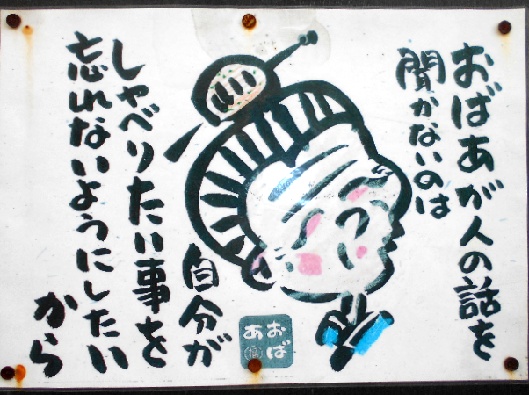 おばあが人の話を
聞かないのは
自分が
しゃべりたい事を
忘れないようにしたい
から
おば
あ